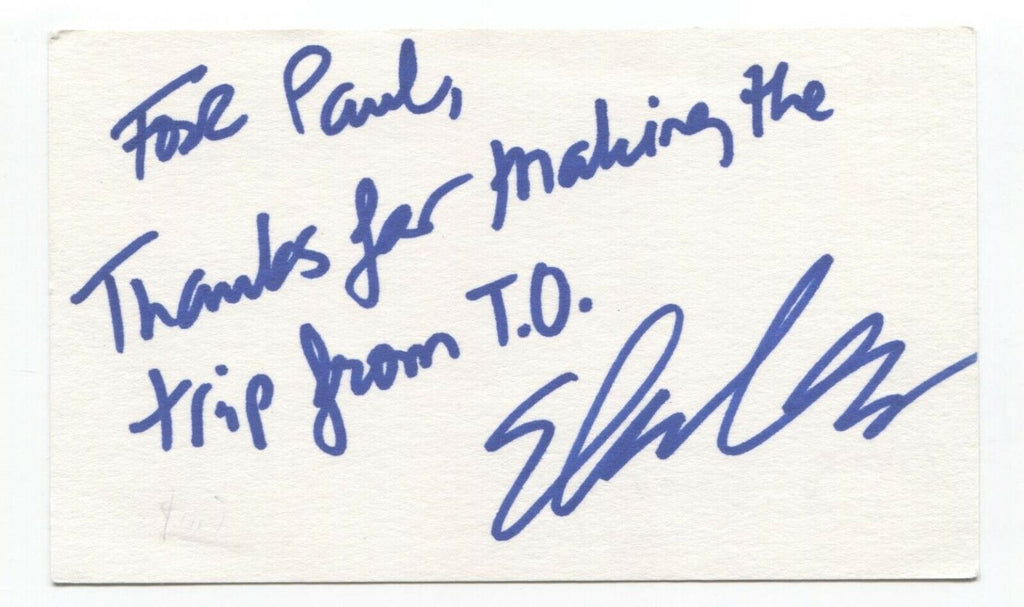 For Paul,
Thanks for making the
trip from T.O.